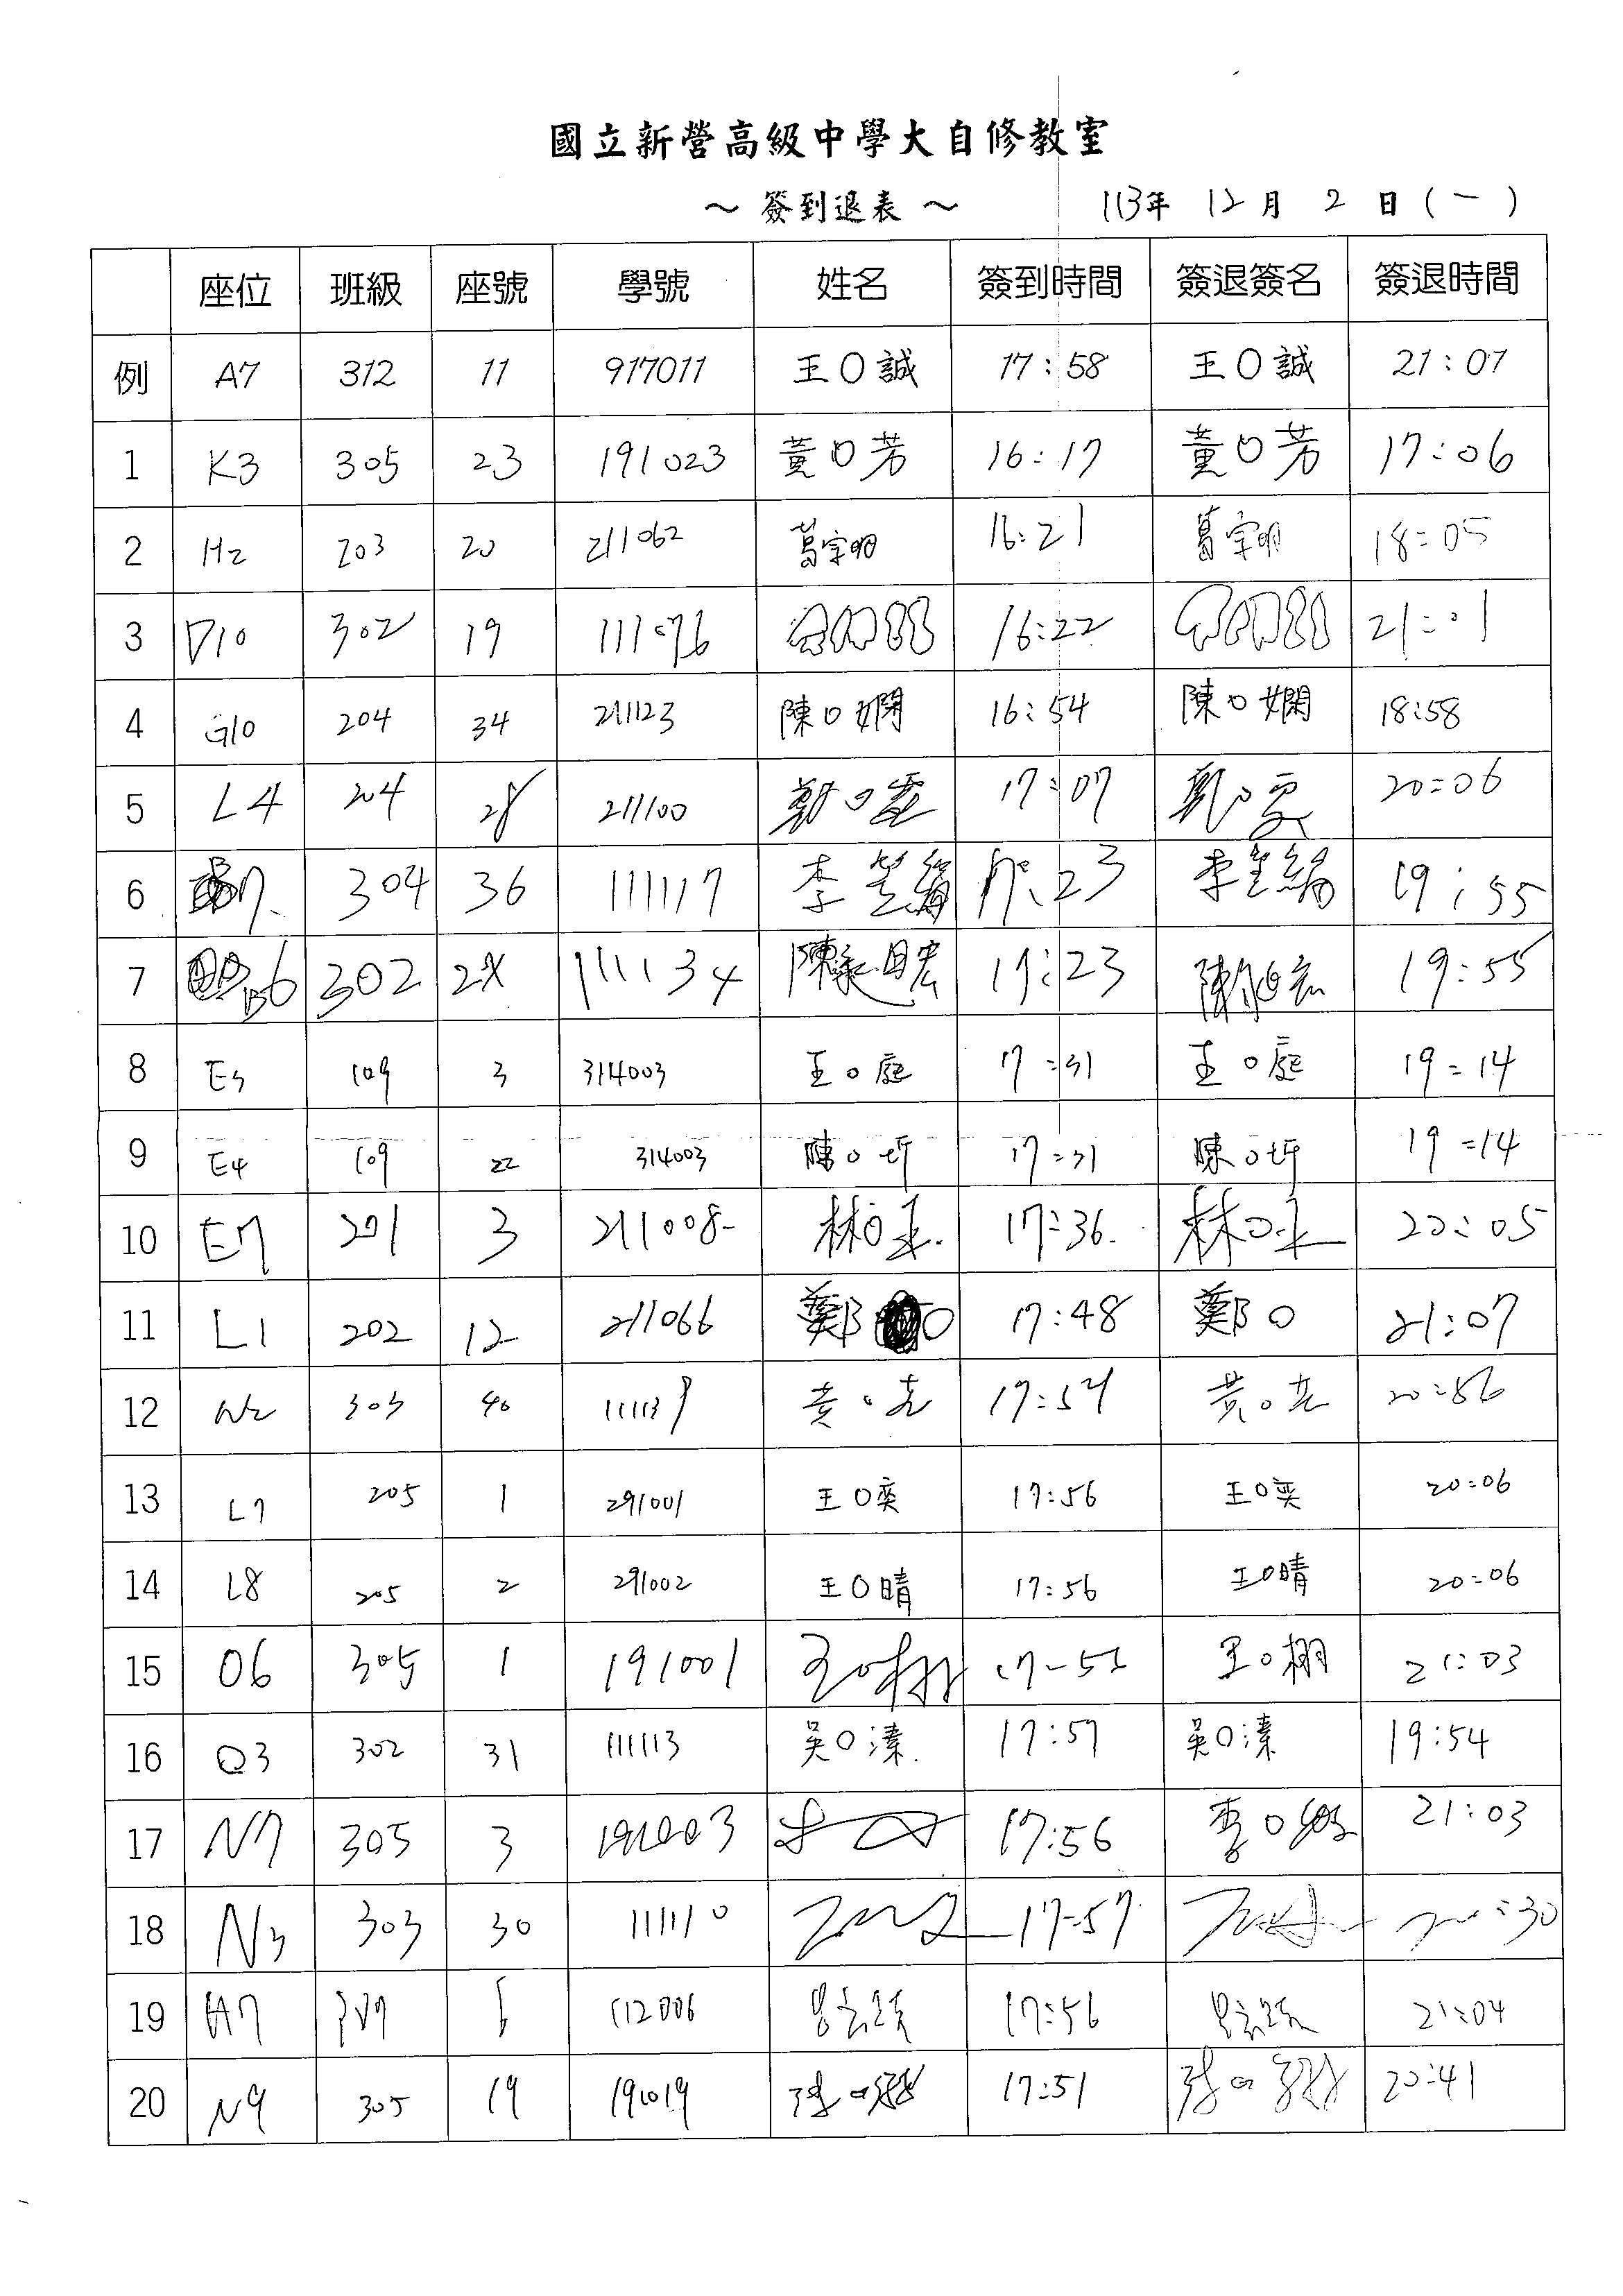 國立新營高級中學大自修教室
～ 簽到退表 ～ 113年 12月 2 日 (一)
座位 班級 座號 學號 姓名 簽到時間 簽退簽名 簽退時間
例 A7 312 11 917011 王O誠 17:58 王O誠 21:07
1 K3 305 23 191023 黃O芳 16:17 黃O芳 17:06
2 H2 203 20 211062 葛宇明 16:21 葛宇明 18:05
3 D10 302 19 111076 16:22 21:01
4 G10 204 34 211123 陳O嫻 16:54 陳O嫻 18:58
5 L4 204 28 211100 鄭O 17:07 20:06
6 B7 304 36 111117 李 17:23 李 19:55
7 B6 302 111134 陳 17:23 陳 19:55
8 E3 109 3 314003 王O庭 17:31 王O庭 19:14
9 E4 109 22 314003 陳O圻 17:31 陳O圻 19:14
10 E7 201 3 211008 林O 17:36 林O 20:05
11 L1 202 12 211066 鄭O 17:48 鄭O 21:07
12 N2 303 40 111139 黃O 17:57 黃O 20:56
13 L7 205 1 291001 王O奕 17:56 王O奕 20:06
14 L8 205 2 291002 王O晴 17:56 王O晴 20:06
15 O6 305 1 191001 王O栩 17-56 王O栩 21:03
16 O3 302 31 111113 吳O溱 17:57 吳O溱 19:54
17 N7 305 3 191003 17:56 李O 21:03
18 N3 303 30 111110 17-57 :30
19 A7 112006 17:56 21:04
20 N9 305 19 191019 17:51 20:41